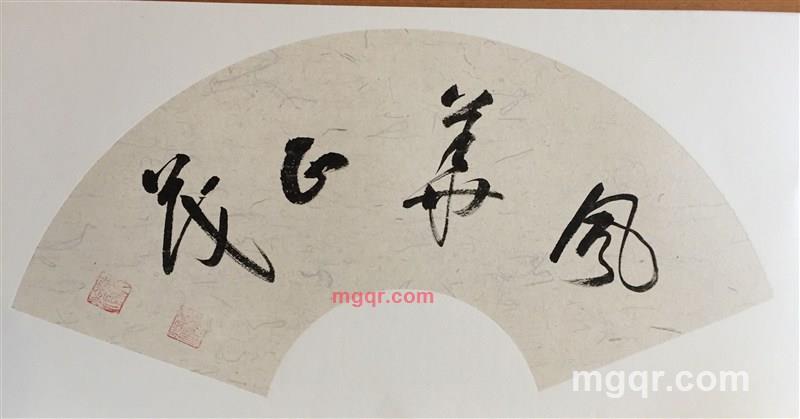 风华正茂
mgqr.com
mgqr.com